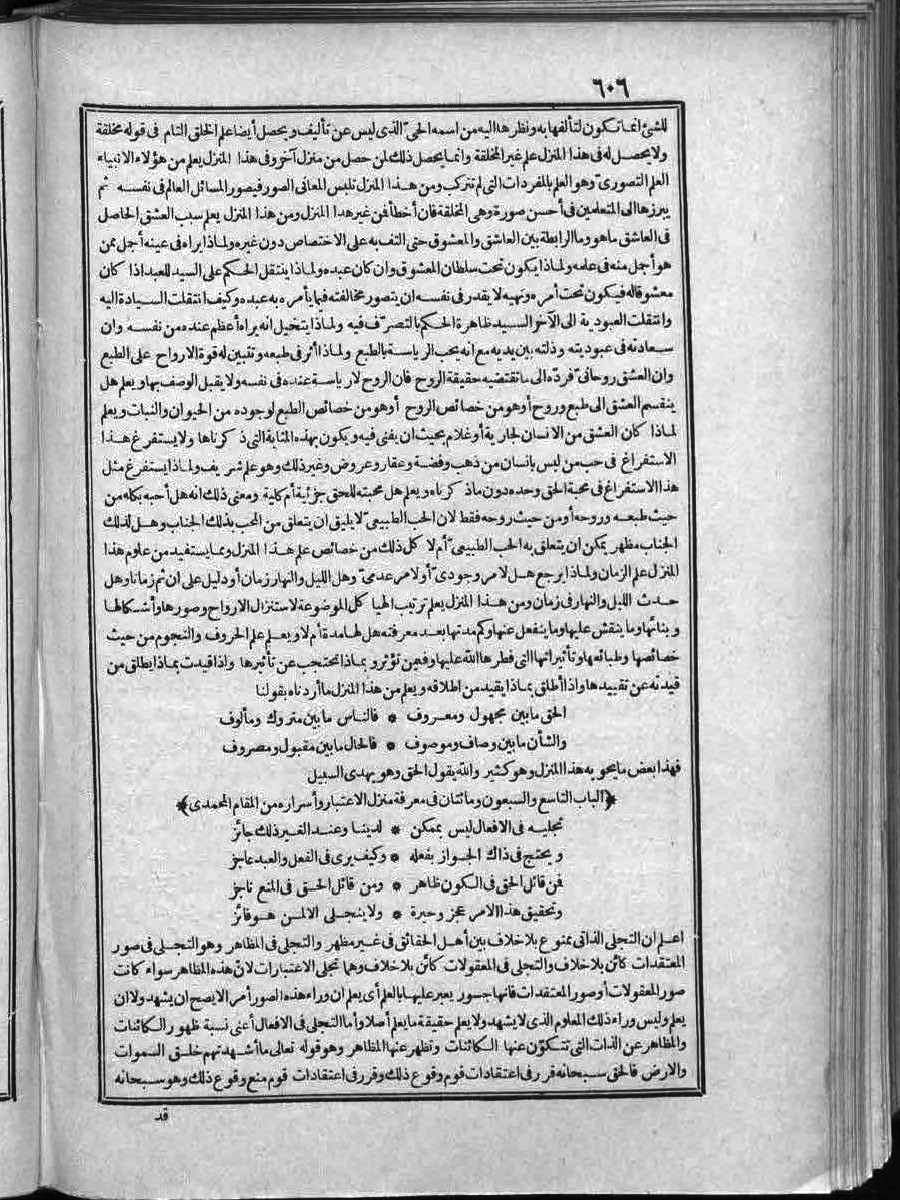 ٦٠٦
للشئ انما تكون لتألفها به ونظرها اليه من اسمه الحي الذى ليس عن تأليف ويحصل أيضا علم الخلق التام فى قوله مخلقة
ولا يحصل له فى هذا المنزل علم غير المخلقة وانما يحصل ذلك لمن حصل من منزل آخر وفى هذا المنزل يعلم من هؤلاء الانبياء
العلم التصورى وهو العلم بالمفردات التى لم تتركب ومن هذا المنزل تلبس المعانى الصور فيصور المسائل العالم فى نفسه ثم
يبرزها الى المتعلمين فى أحسن صورة وهى المخلقة فان أخطأ فمن غير هذا المنزل ومن هذا المنزل يعلم سبب العشق الحاصل
فى العاشق ما هو وما الرابطة بين العاشق والمعشوق حتى التف به على الاختصاص دون غيره ولماذا يراه فى عينه أجل ممن
هو أجل منه فى علمه ولماذا يكون تحت سلطان المعشوق وان كان عبده ولماذا ينتقل الحكم على السيد للعبد اذا كان
معشوقا له فيكون تحت أمره ونهيه لا يقدر فى نفسه ان يتصور مخالفته فيما يأمره به عبده وكيف انتقلت السيادة اليه
وانتقلت العبودية الى الآخر السيد ظاهرة الحكم بالتصرف فيه ولماذا يتخيل انه يراه أعظم عنده من نفسه وان
سعادته فى عبوديته وذلته بين يديه مع انه يحب الرياسة بالطبع ولماذا أثر فى طبعه وتتبين له قوة الارواح على الطبع
وان العشق روحانى فرده الى ما تقتضيه حقيقة الروح فان الروح لا رياسة عنده فى نفسه ولا يقبل الوصف بها ويعلم هل
ينقسم العشق الى طبع وروح أو هو من خصائص الروح أو هو من خصائص الطبع لوجوده من الحيوان والنبات ويعلم
لماذا كان العشق من الانسان لجارية أو غلام بحيث ان يفنى فيه ويكون بهذه المثابة التى ذكرناها ولا يستفرغ هذا
الاستفراغ فى حب من ليس بانسان من ذهب وفضة وعقار وعروض وغير ذلك وهو علم شريف ولماذا يستفرغ مثل
هذا الاستفراغ فى محبة الحق وحده دون ما ذكرناه ويعلم هل محبته للحق جزئية أم كلية ومعنى ذلك انه هل أحبه بكله من
حيث طبعه وروحه أو من حيث روحه فقط لان الحب الطبيعى لا يليق ان يتعلق من المحب بذلك الجناب وهل لذلك
الجناب مظهر يمكن ان يتعلق به الحب الطبيعى أم لا كل ذلك من خصائص علم هذا المنزل ومما يستفيد من علوم هذا
المنزل علم الزمان ولماذا يرجع هل لامر وجودى أو لامر عدمى وهل الليل والنهار زمان أو دليل على ان ثم زمانا وهل
حدث الليل والنهار فى زمان ومن هذا المنزل يعلم ترتيب الهياكل الموضوعة لاستنزال الارواح وصورها وأشكالها
وبنائها وما ينقش عليها وما ينفعل عنها وكم مدتها بعد معرفته هل لها مدة أم لا ويعلم علم الحروف والنجوم من حيث
خصائصها وطبائعها وتأثيراتها التى فطرها الله عليها وفيمن تؤثر وبماذا تحتجب عن تأثيرها واذا قيدت بماذا يطلق من
قيدته عن تقييدها واذا أطلق بماذا يقيد من اطلاقه ويعلم من هذا المنزل ما أردناه بقولنا
الحق ما بين مجهول ومعروف * فالناس ما بين متروك ومألوف
والشأن ما بين وصاف وموصوف * فالحال ما بين مقبول ومصروف
فهذا بعض ما يحويه هذا المنزل وهو كثير والله يقول الحق وهو يهدى السبيل
﴿الباب التاسع والسبعون ومائتان فى معرفة منزل الاعتبار وأسراره من المقام المحمدى﴾
تجليه فى الافعال ليس بممكن * لدينا وعند الغير ذلك جائز
ويحتج فى ذاك الجواز بفعله * وكيف يرى فى الفعل والعبد عاجز
فمن قائل الحق فى الكون ظاهر * ومن قائل الحق فى المنع ناجز
وتحقيق هذا الامر عجز وحيرة * ولا ينجلى الا لمن هو فائز
اعلم ان التجلى الذاتى ممنوع بلا خلاف بين أهل الحقائق فى غير مظهر والتجلى فى المظاهر وهو التجلى فى صور
المعتقدات كائن بلا خلاف والتجلى فى المعقولات كائن بلا خلاف وهما تجلى الاعتبارات لان هذه المظاهر سواء كانت
صور المعقولات أو صور المعتقدات فانها جسور يعبر عليها بالعلم أى يعلم ان وراء هذه الصور أمرا لا يصح ان يشهد ولا ان
يعلم وليس وراء ذلك المعلوم الذى لا يشهد ولا يعلم حقيقة ما يعلم أصلا وأما التجلى فى الافعال أعنى نسبة ظهور الكائنات
والمظاهر عن الذات التى تتكون عنها الكائنات وتظهر عنها المظاهر وهو قوله تعالى ما أشهدتهم خلق السموات
والارض فالحق سبحانه قرر فى اعتقادات قوم وقوع ذلك وقرر فى اعتقادات قوم منع وقوع ذلك وهو سبحانه
قد